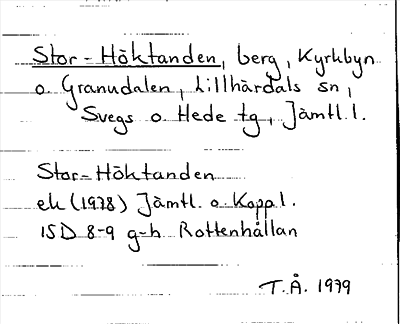 Stor-Höktanden, berg, Kyrkbyn
o. Granudalen, Lillhärdals sn,
Svegs o. Hede tg, Jämtl.l.
Stor-Höktanden
ek (1978) Jämtl. o. Kopp l.
15D 8-9 g-h Rottenhållan
T.Å. 1979